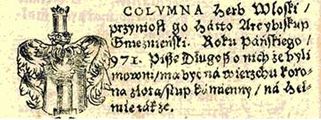 COLVMNA Herb Włoski /
przyniosł go Hatto Arcybiskup
Gnieznieński. Roku Pańskiego /
971. Pisze Długosz o nich że byli
mowni / ma być na wierzchu koro-
na złota / słup kamienny / na Heł-
mie także.